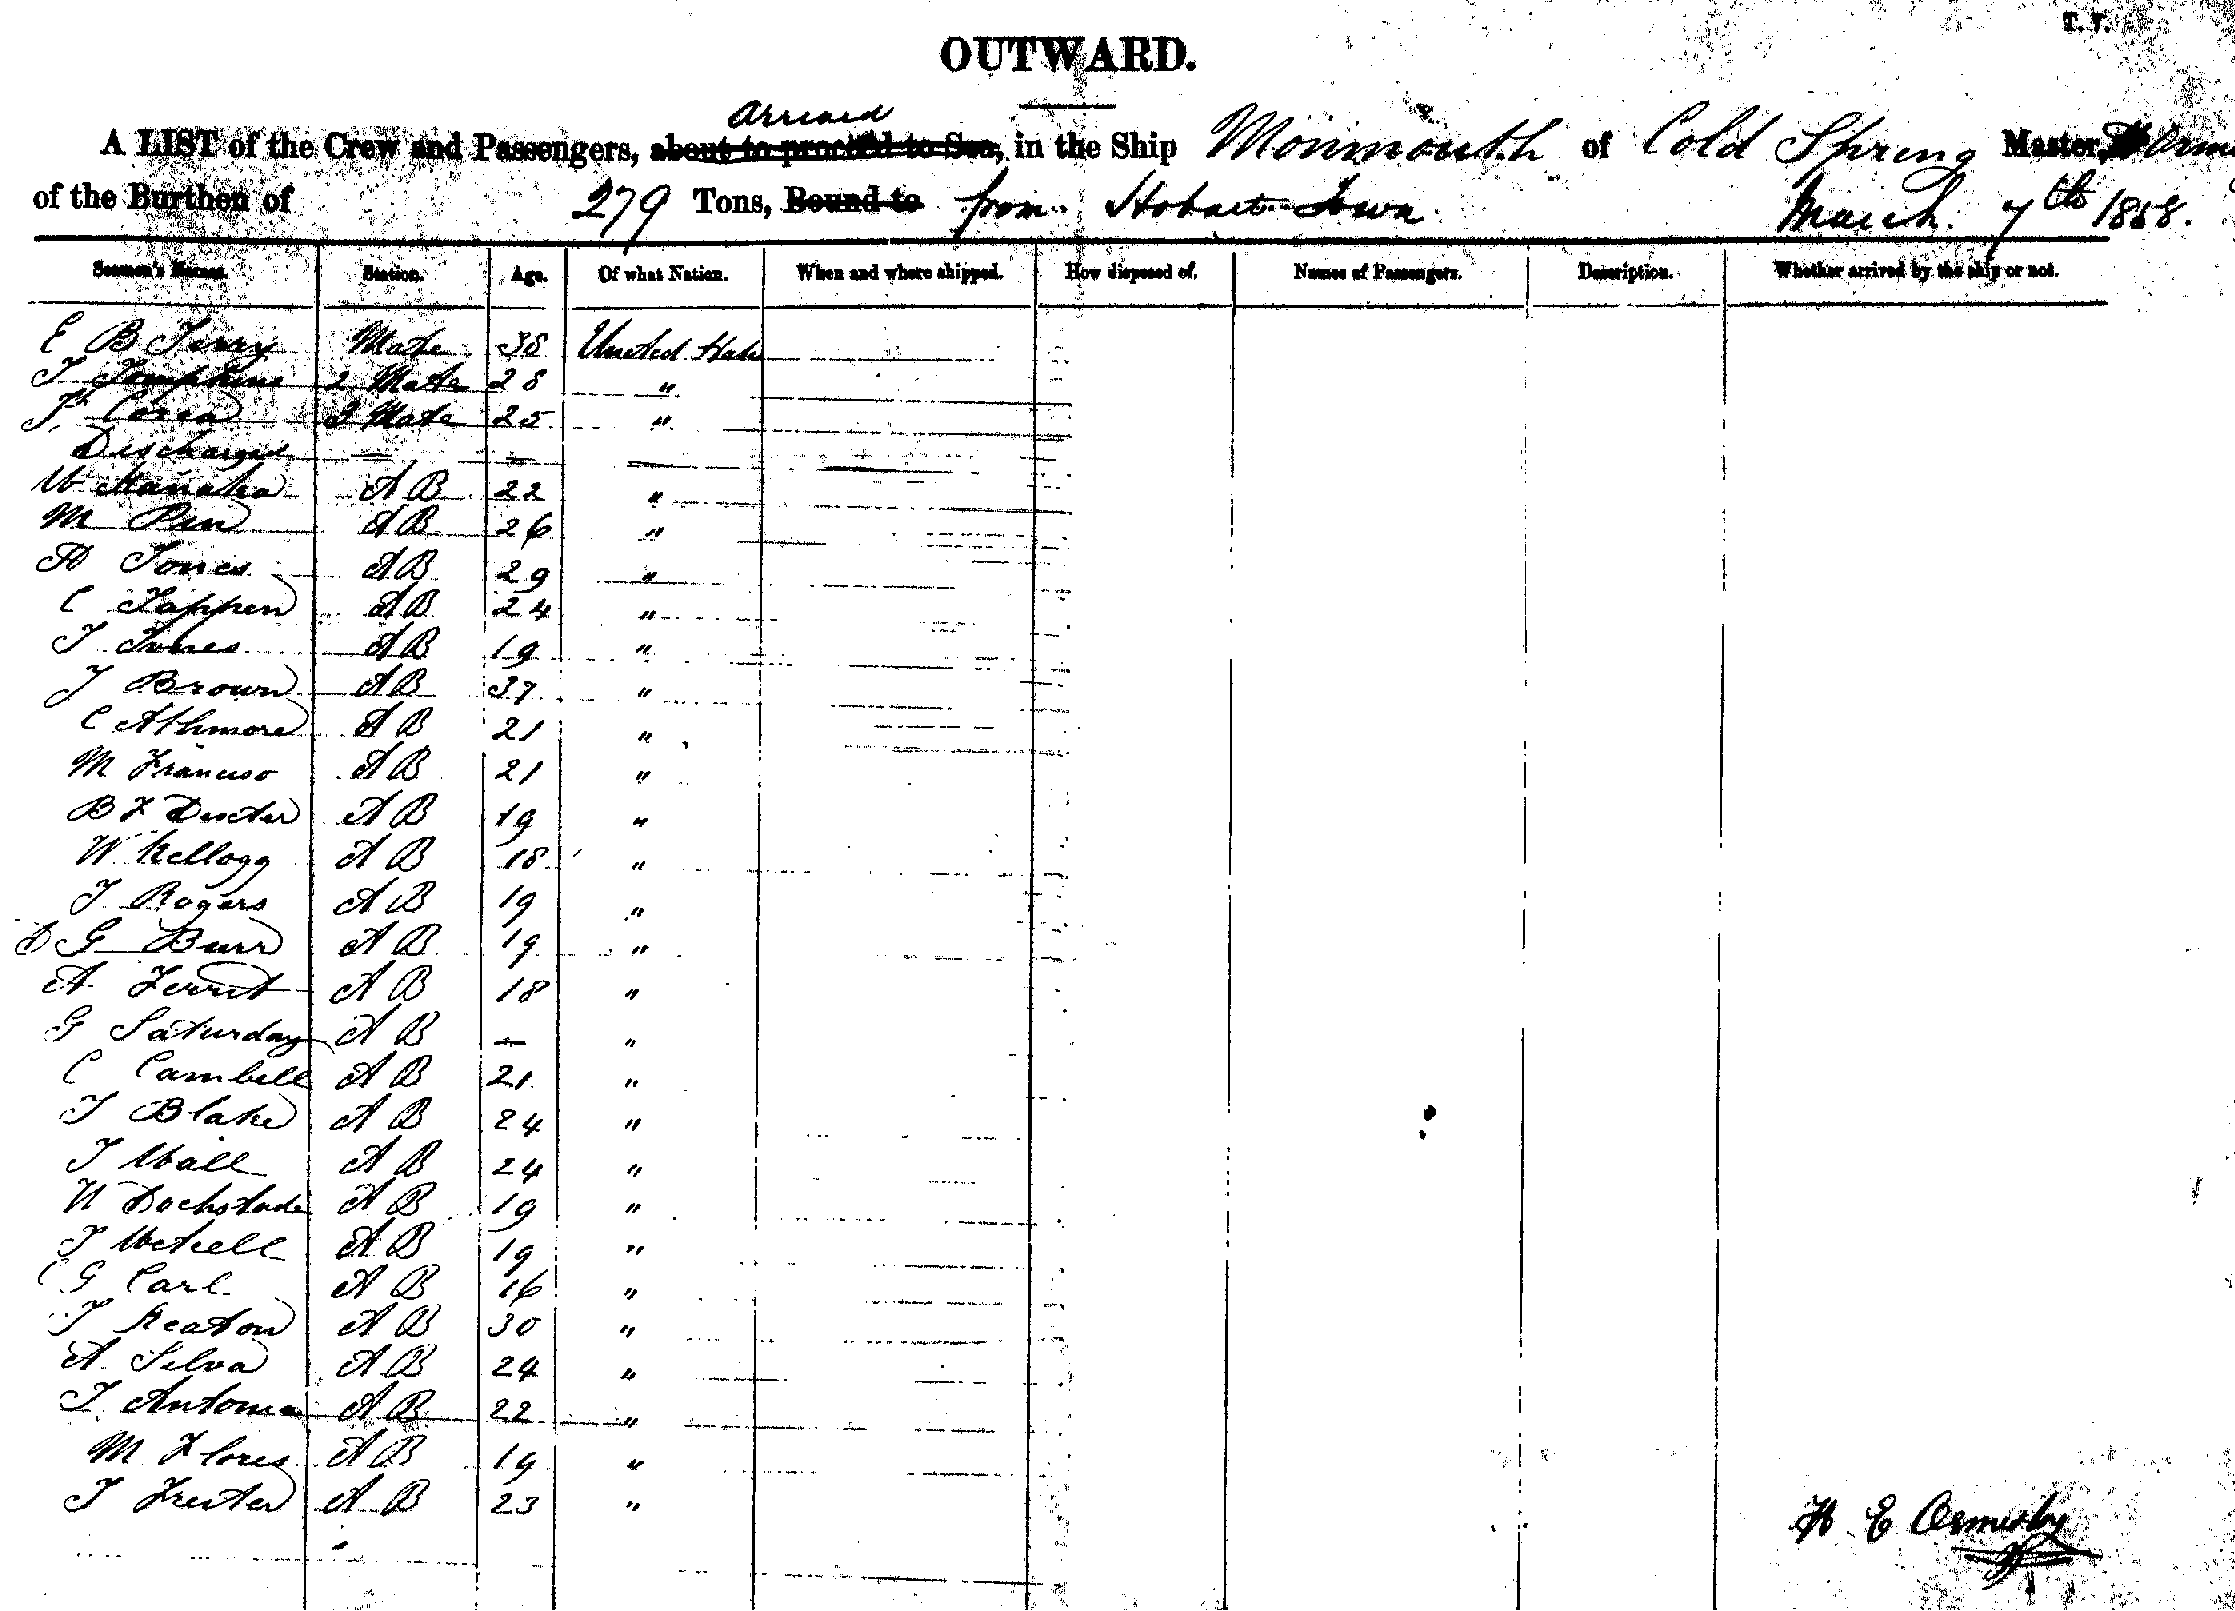 T. T.
OUTWARD.
Arrived
A LIST of the Crew and Passengers, about to proceed to Sea, in the Ship Monmouth of Cold Spring Master, H Orms
of the Burthen of 279 Tons, Bound to from Hobart Town March 7th 1858.
Seamen's Names. Station. Age. Of what Nation. When and where shipped. How disposed of. Names of Passengers. Description. Whether arrived by the ship or not.
E B Terry Mate 38 United State
T Tompkins 2 Mate 28 "
T. Correa 3 Mate 25 "
Discharged — — —
W Manaha A B 22 "
M Pen A B 26 "
H Jones A B 29 "
C Tappen A B 24 "
J Jones A B 19 "
J Brown A B 37 "
C Athmore A B 21 "
M Francisco A B 21 "
B F Dexter A B 19 "
W Kellogg A B 18 "
J Rogers A B 19 "
D G Burr A B 19 "
A Ferrit A B 18 "
G Saturday A B — "
C Cambell A B 21 "
J Blake A B 24 "
J Wall A B 24 "
W Dockstade A B 19 "
J Uchell A B 19 "
C G Carl A B 16 "
J Keaton A B 30 "
A Silva A B 24 "
J Antonia A B 22 "
M Flores A B 19 "
J Frester A B 23 "
H E Ormsby